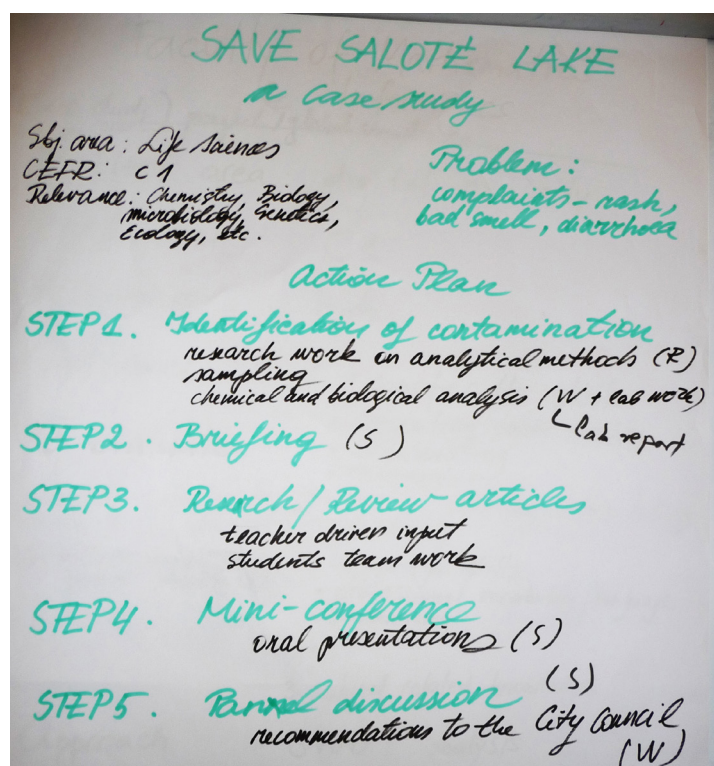 SAVE SALOTÉ LAKE
a case study
Sbj. area: Life Sciences
CEFR: C1
Relevance: Chemistry, Biology,
microbiology, Genetics,
Ecology, etc.
Problem:
complaints - rash,
bad smell, diarrhoea
Action Plan
STEP1. Identification of contamination
research work on analytical methods (R)
sampling
chemical and biological analysis (W + lab work)
Lab report
STEP2. Briefing (S)
STEP3. Research/Review articles
teacher driven input
students team work
STEP4. Mini-conference
oral presentations (S)
STEP5. Pannel discussion (S)
recommendations to the City Council
(W)